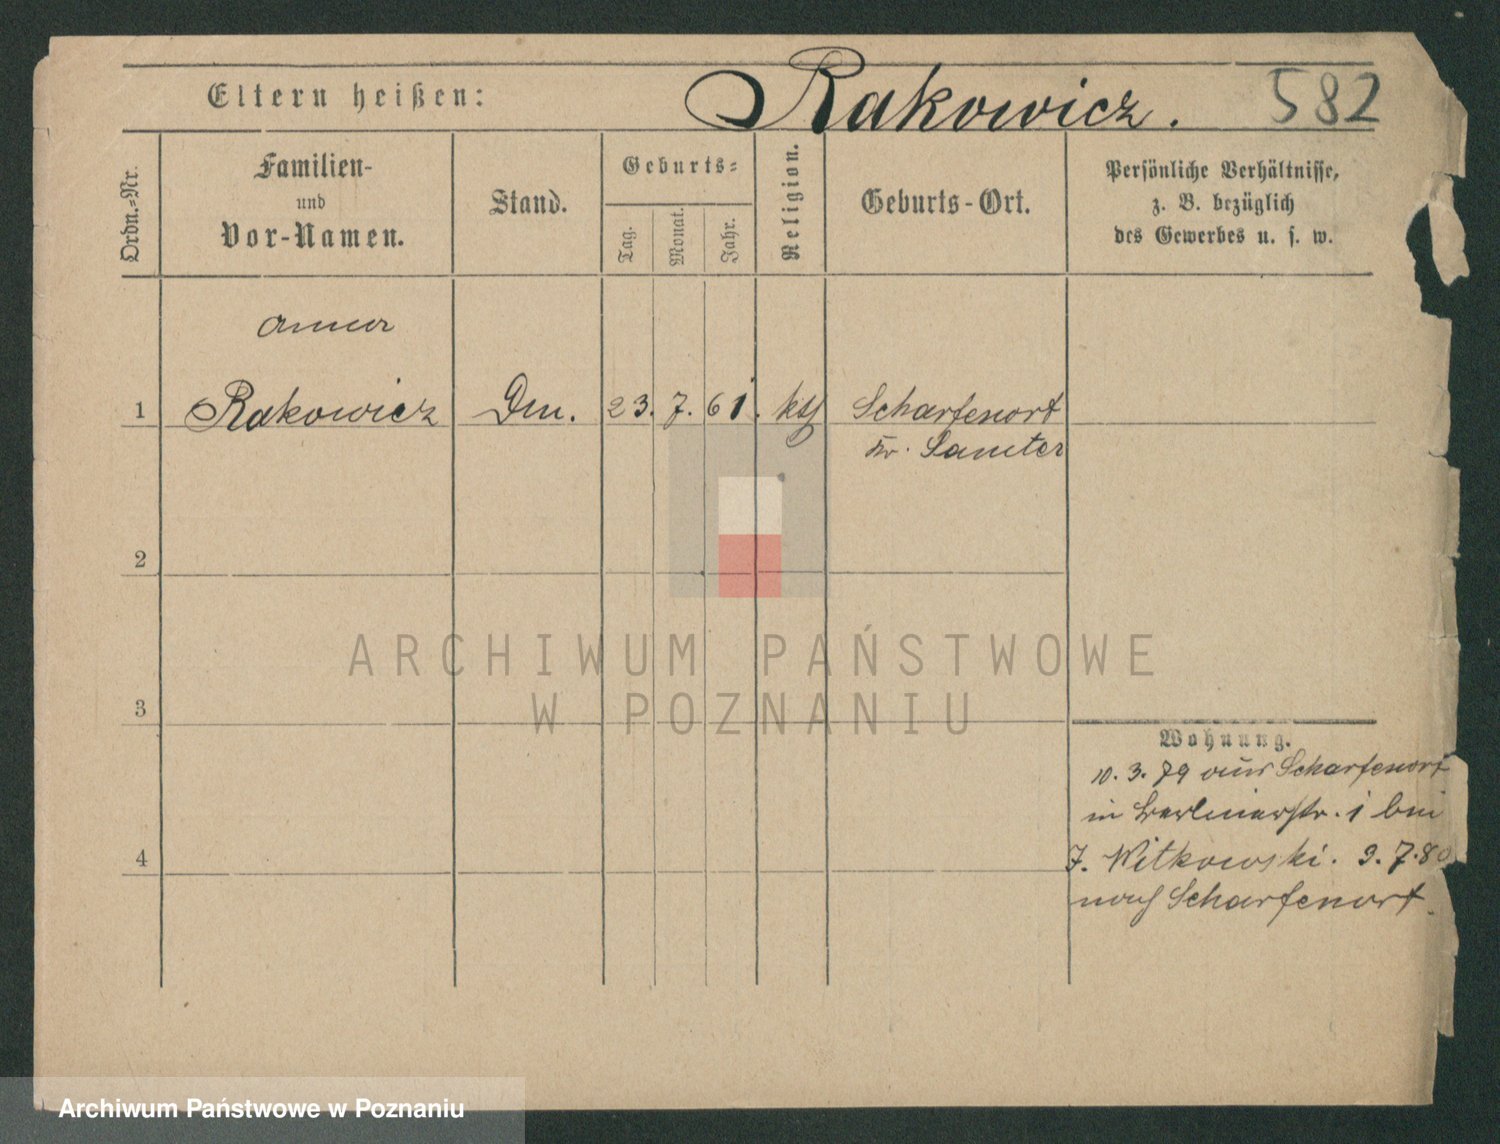 Eltern heißen: Rakowicz. 582
Ordn.-Nr.
Familien-
und
Vor-Namen.
Stand.
Geburts-
Tag.
Monat.
Jahr.
Religion.
Geburts-Ort.
Persönliche Verhältnisse,
z. B. bezüglich
des Gewerbes u. s. w.
Anna
1 Rakowicz Dm. 23. 7. 61. kth Scharfenort
Kr. Samter
2
ARCHIWUM PAŃSTWOWE
W POZNANIU
3
Wohnung.
10. 3. 79 aus Scharfenort
in Berlinerstr. 1 bei
J. Witkowski. 3. 7. 80
nach Scharfenort.
4
Archiwum Państwowe w Poznaniu